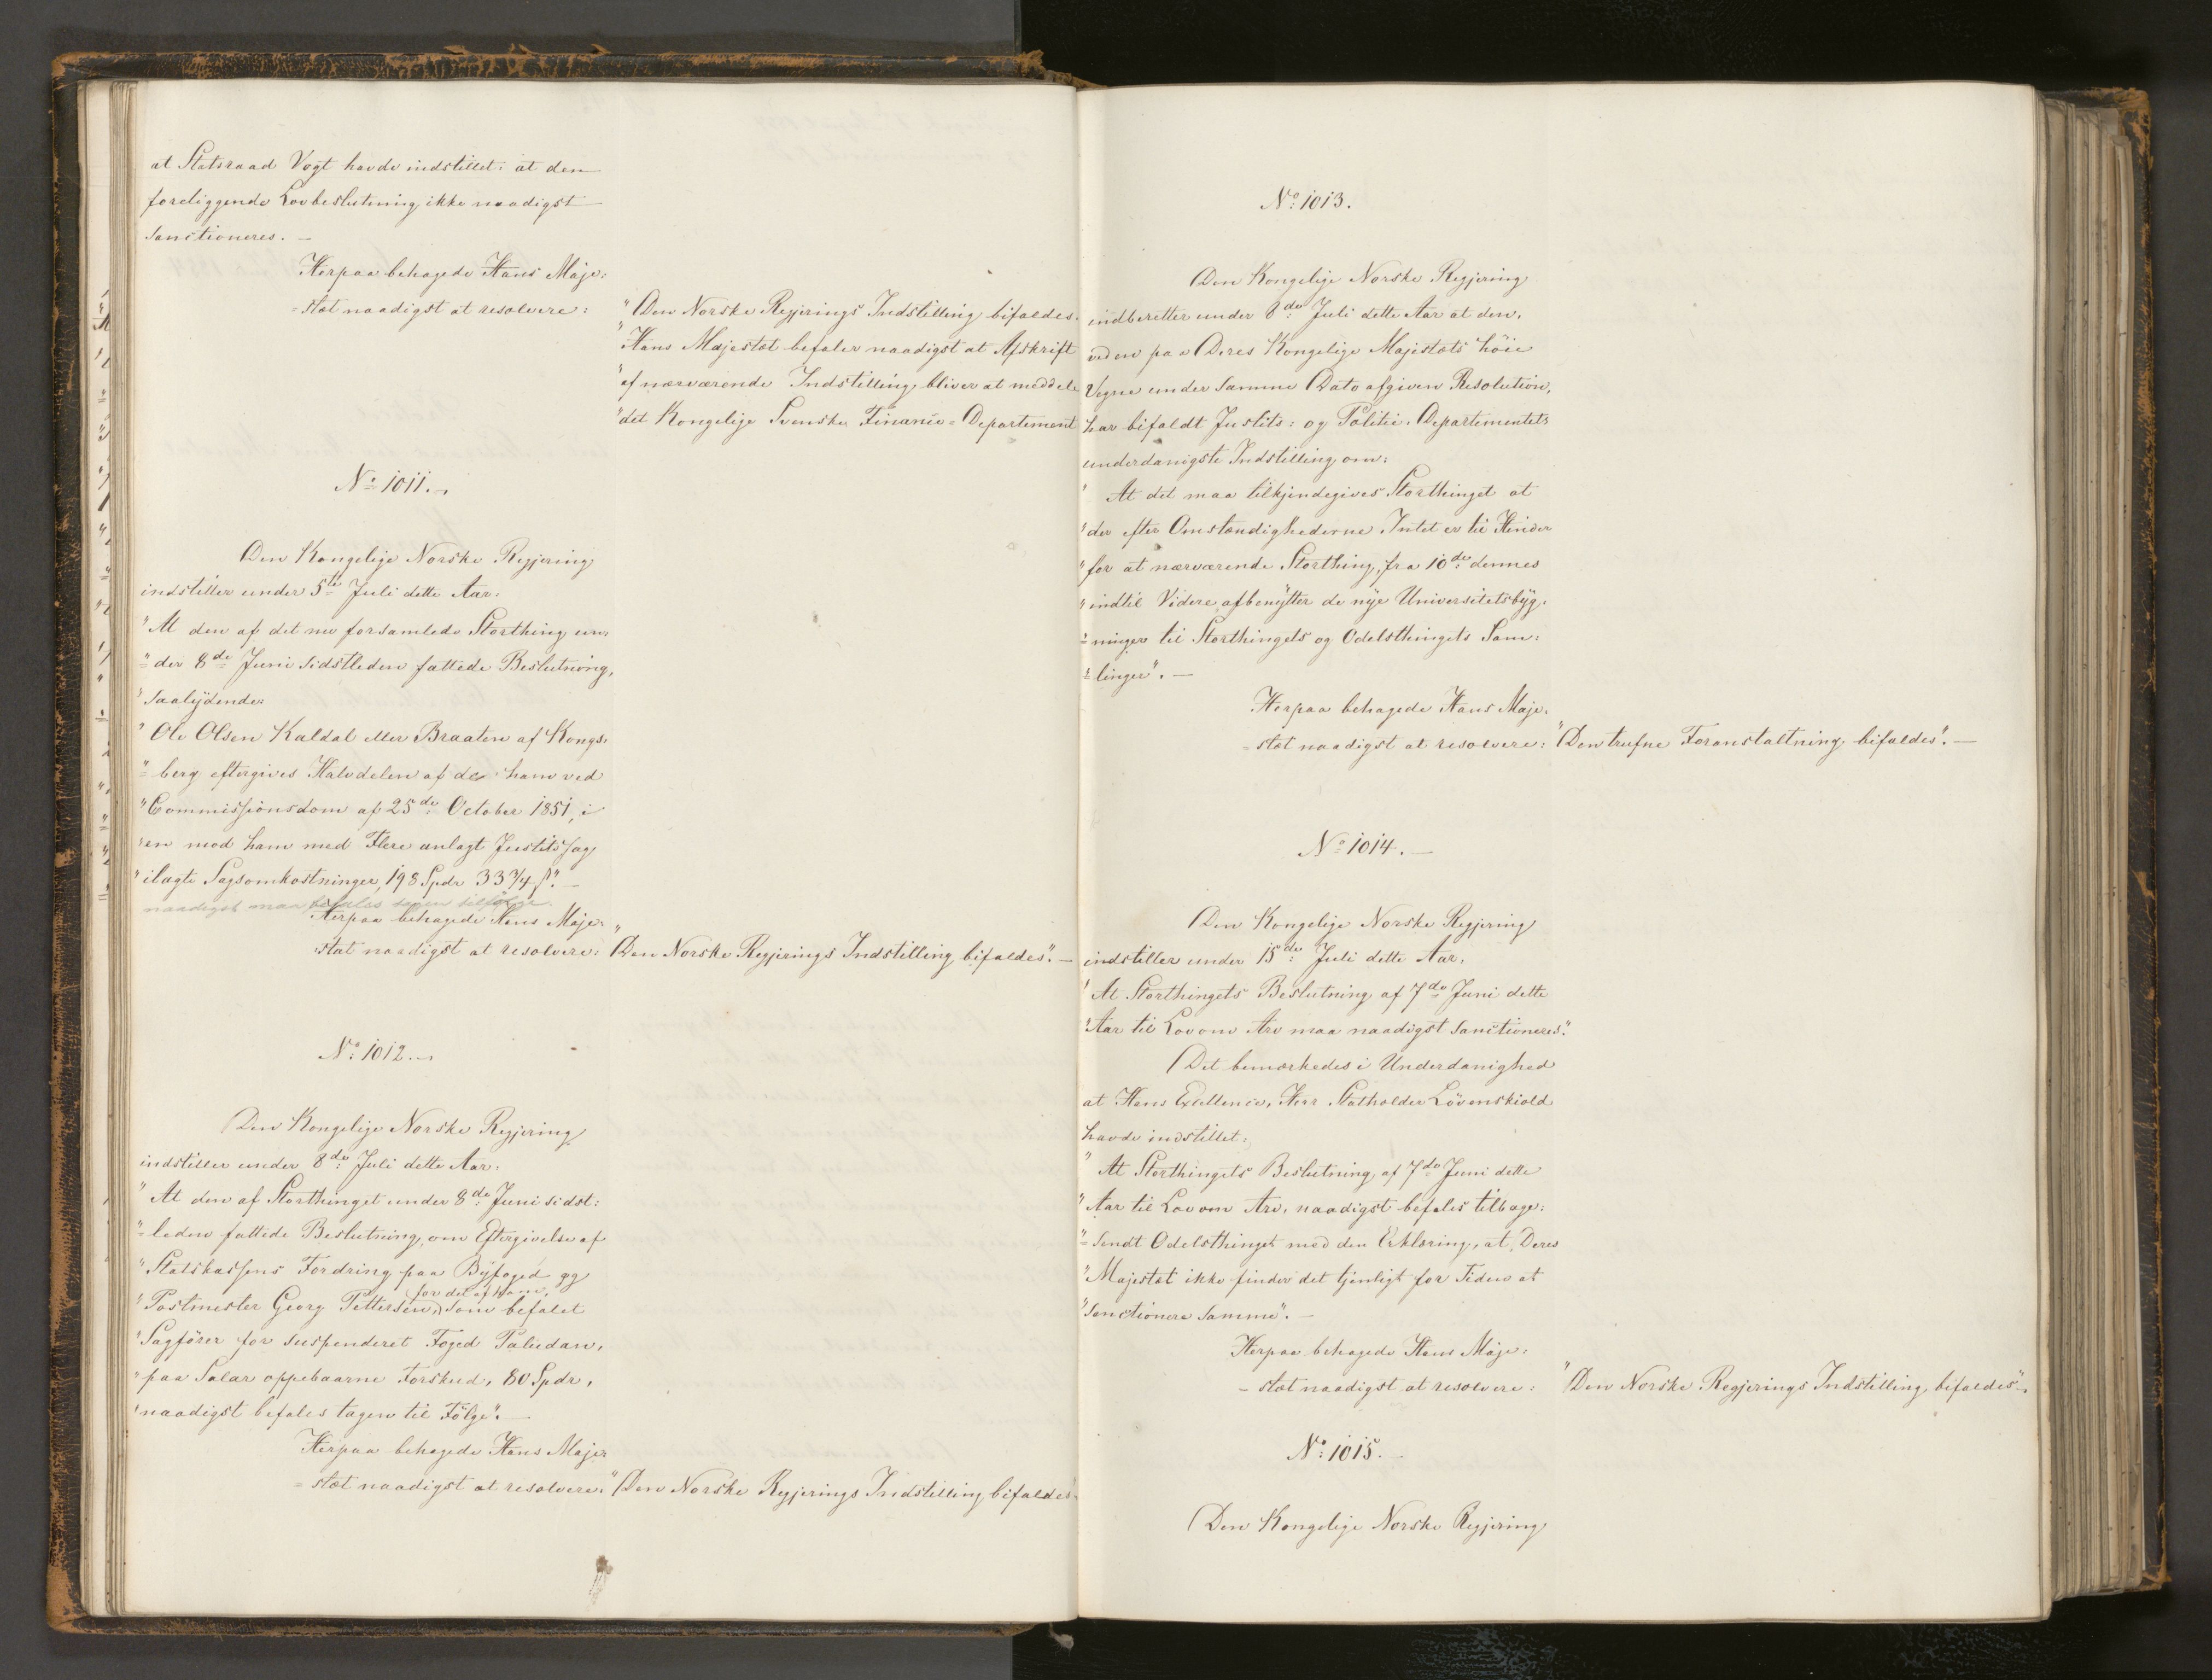 at Statsraad Vogt havde indstillet: at den
foreliggende Lovbeslutning ikke naadigst
sanctioneres. —
Herpaa behagede Hans Maje:
=stæt naadigst at resolvere:
"Den Norske Regjerings Indstilling bifaldes.
"Hans Majestæt befaler naadigst at Afskrift
"af nærværende Indstilling bliver at meddele
"det Kongelige Svenske Finants=Departement
No 1011. —
Den Kongelige Norske Regjering
indstiller under 5te Juli dette Aar:
"At den af det nu forsamlede Storthing un=
"=der 8de Juni sidstleden fattede Beslutning,
"saalydende:
"Ole Olsen Kaldal eller Braaten af Kongs=
"=berg eftergives Halvdelen af de ham ved
"Commissionsdom af 25de October 1851, i
"en mod ham med Flere anlagt Justitssag
"ilagte Sagsomkostninger, 198 Spdr 33 3/4 ß". —
naadigst maa befales tagen tilfølge.
Herpaa behagede Hans Maje=
=stæt naadigst at resolvere:
"Den Norske Regjerings Indstilling bifaldes". —
No 1012. —
Den Kongelige Norske Regjering
indstiller under 8de Juli dette Aar:
"At den af Storthinget under 8de Juni sidst=
"=leden fattede Beslutning, om Eftergivelse af
"Statskassens Fordring paa Byfoged og
"Postmester Georg Pettersen, for det af ham, som befalet
"Sagfører for suspenderet Foged Paludan,
"paa Salær oppebaarne Forskud, 80 Spdr,
"naadigst befales tagen til Følge". —
Herpaa behagede Hans Maje=
=stæt naadigst at resolvere:
"Den Norske Regjerings Indstilling bifaldes"
No 1013.
Den Kongelige Norske Regjering
indberetter under 8de Juli dette Aar at den,
ved en paa Deres Kongelige Majestæts høie
Vegne under samme Dato afgiven Resolution,
har bifaldt Justits= og Politie=Departementets
underdanigste Indstilling om:
"At det maa tilkjendegives Storthinget at
"der efter Omstændighederne Intet er til Hinder
"for at nærværende Storthing, fra 10de dennes
"indtil Videre afbenytter de nye Universitetsbyg=
"=ninger til Storthingets og Odelsthingets Sam=
"=linger". —
Herpaa behagede Hans Maje=
=stæt naadigst at resolvere:
"Den trufne Foranstaltning bifaldes". —
No 1014. —
Den Kongelige Norske Regjering
indstiller under 15de Juli dette Aar:
"At Storthingets Beslutning af 7de Juni dette
"Aar til Lov om Arv maa naadigst sanctioneres".
Det bemærkedes i Underdanighed
at Hans Excellence, Herr Statholder Løvenskiold
havde indstillet:
"At Storthingets Beslutning af 7de Juni dette
"Aar til Lov om Arv, naadigst befales tilbage=
"=sendt Odelsthinget med den Erklæring, at Deres
"Majestæt ikke finder det tjenligt for Tiden at
"sanctionere samme". —
Herpaa behagede Hans Maje=
=stæt naadigst at resolvere:
"Den Norske Regjerings Indstilling bifaldes". —
No 1015. —
Den Kongelige Norske Regjering